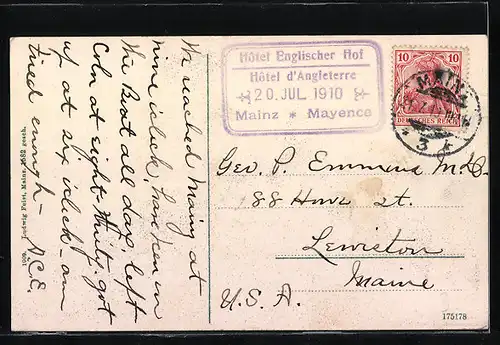 We reached Mainz at
nine o'clock, have been on
the Boat all day. left
Coln at eight-thirty. got
up at six o'clock - am
tired enough -
A.C.E.
Hôtel Englischer Hof
Hôtel d'Angleterre
20. JUL. 1910
Mainz * Mayence
10 10
DEUTSCHES REICH
MAINZ
* 3 k
Geo. P. Emmons M.D.
88 Howe St.
Lewiston
Maine
U.S.A.
175178